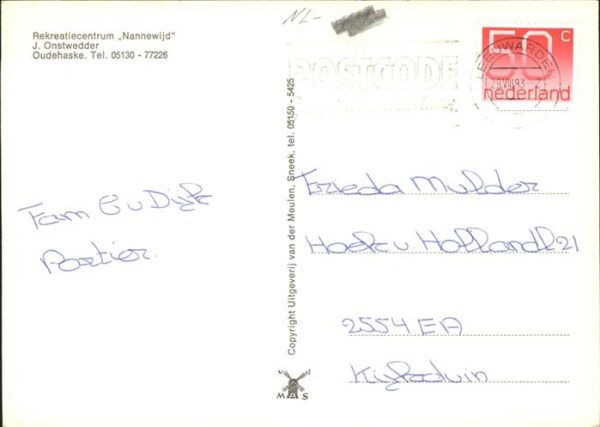 Rekreatiecentrum „Nannewijd"
J. Onstwedder
Oudehaske. Tel. 05130 - 77226
NL-
POSTCODE
LEEUWARDEN
50 c
nederland
Copyright Uitgeverij van der Meulen, Sneek, tel. 05150 - 5425
Fam G v Dijk
Portier.
Frieda Mulder
Hoek v. Holland 21
2554 EA
Kijkduin
v d
MAS